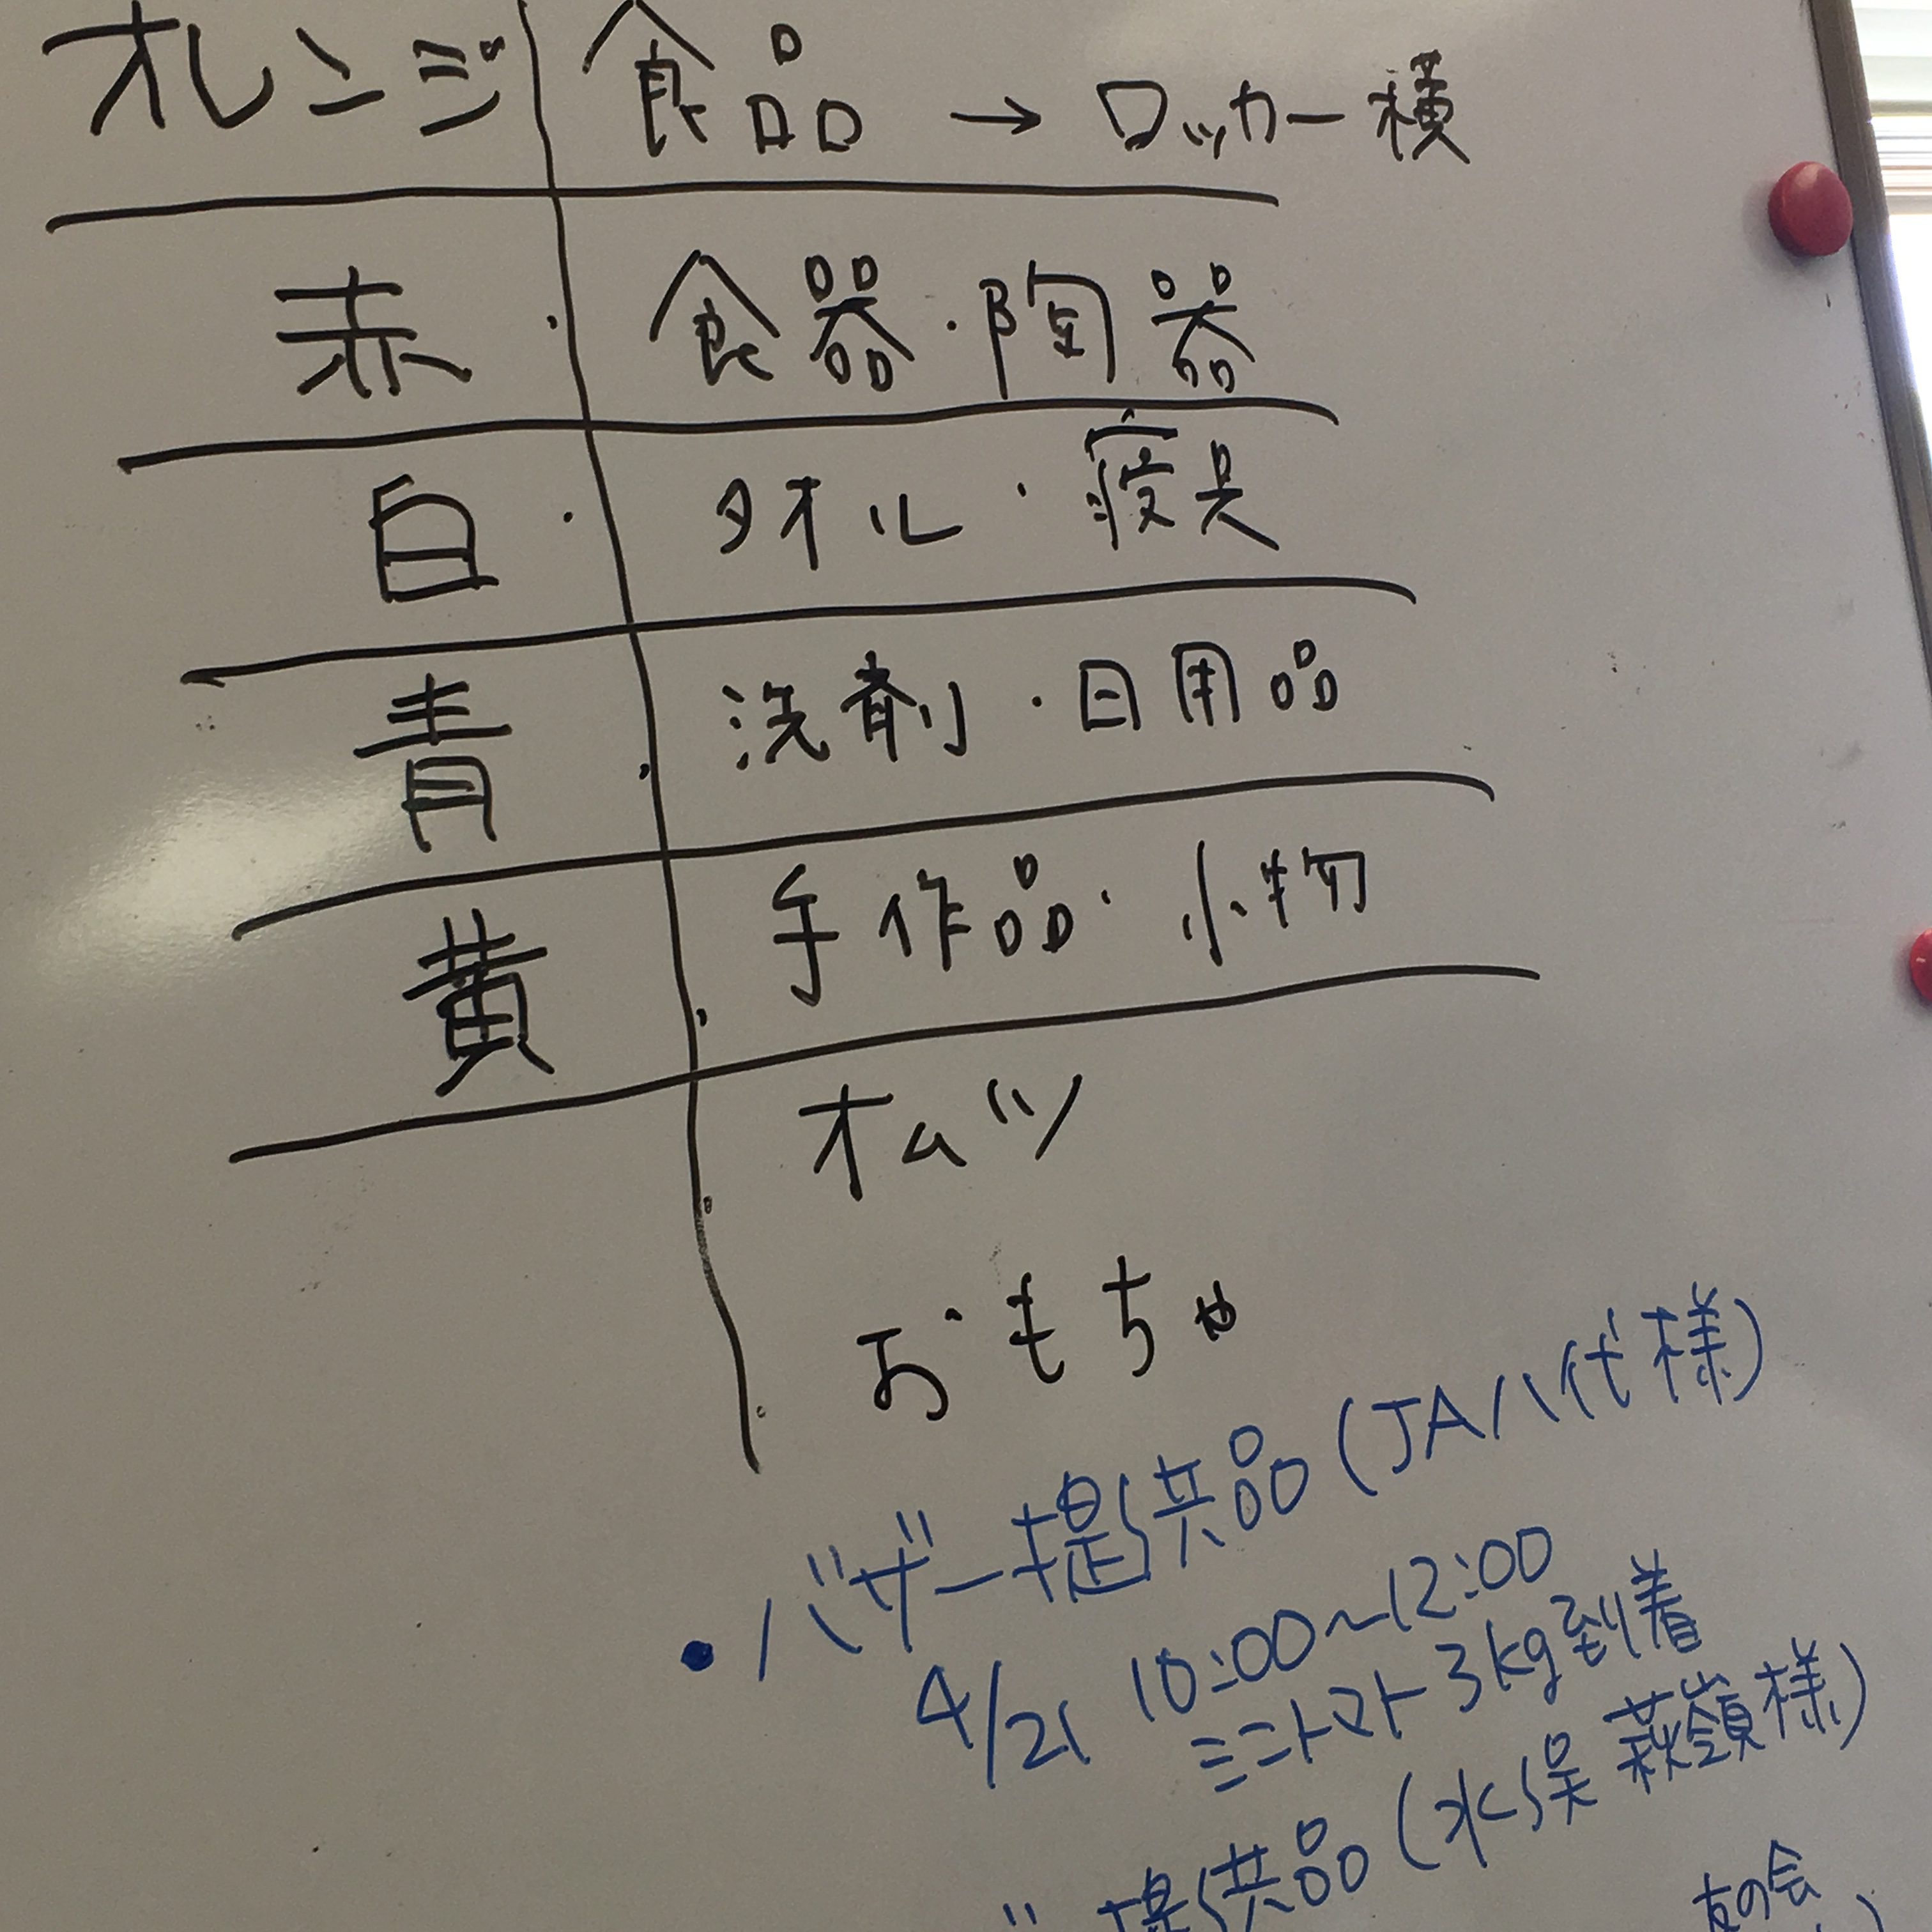 オレンジ 食品 → ロッカー横
赤 食器・陶器
白 タオル・寝具
青 洗剤・日用品
黄 手作品・小物
オムツ
おもちゃ
・バザー提供品(JA八代様)
4/21 10:00~12:00
ミニトマト3kg到着
提供品(水俣 萩嶺様)
友の会